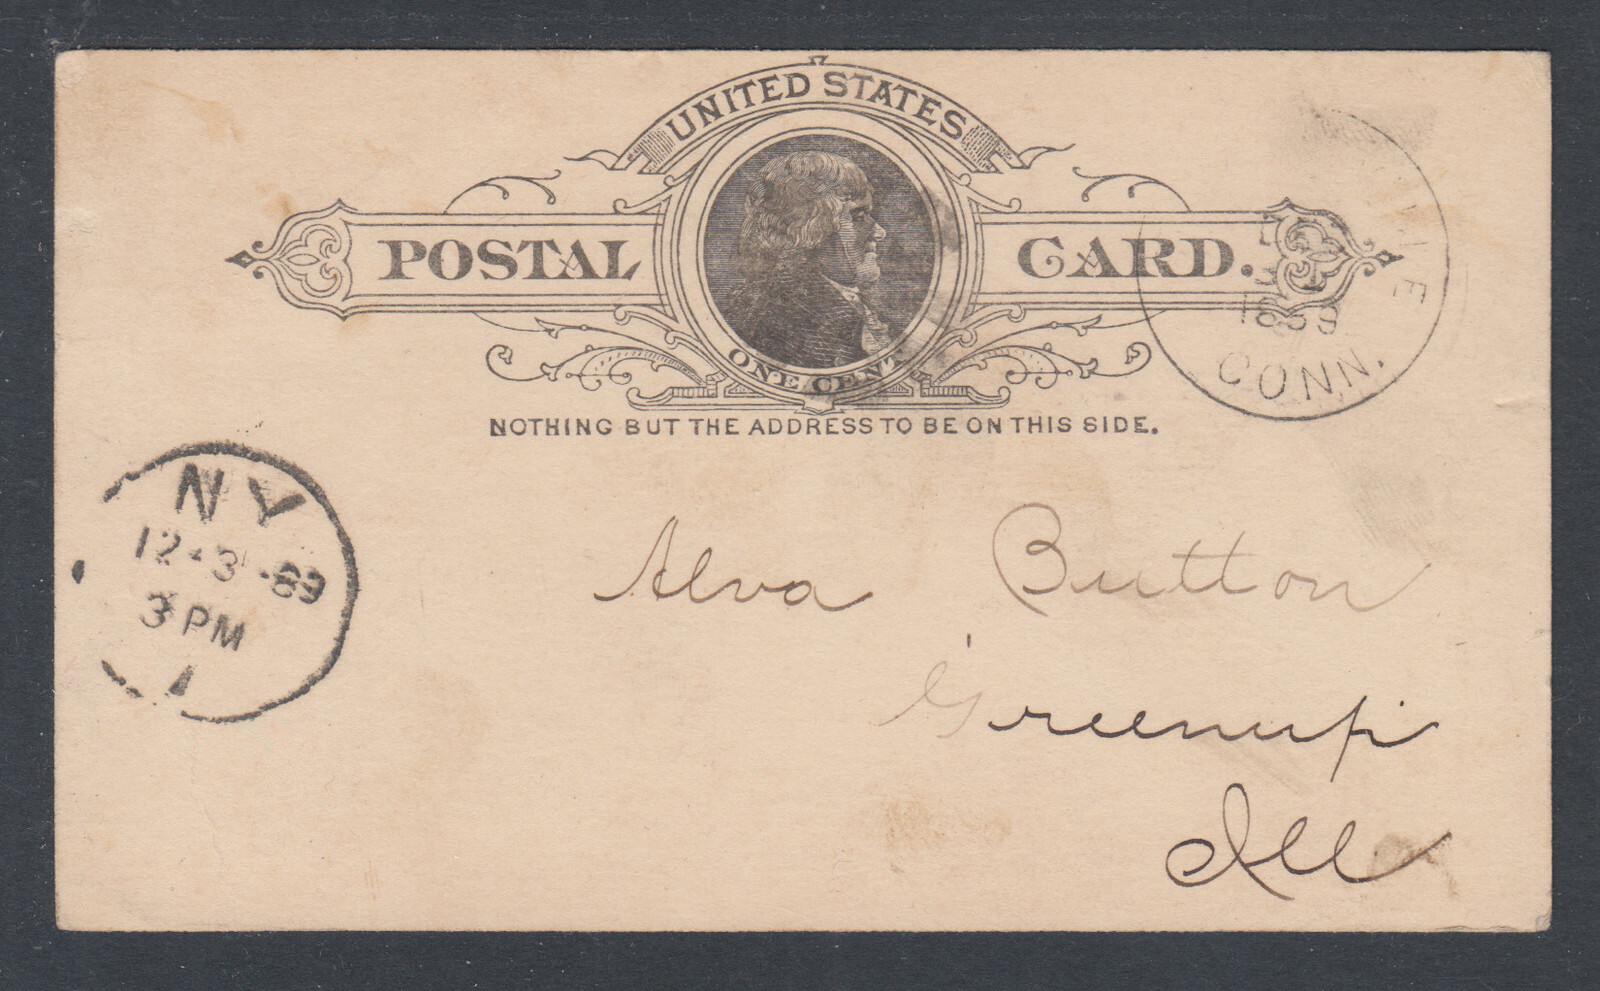 UNITED STATES
POSTAL CARD.
ONE CENT
NOTHING BUT THE ADDRESS TO BE ON THIS SIDE.
1889
CONN.
N Y
12-3-89
3 PM
1
Alva Button
Greenup
Ill